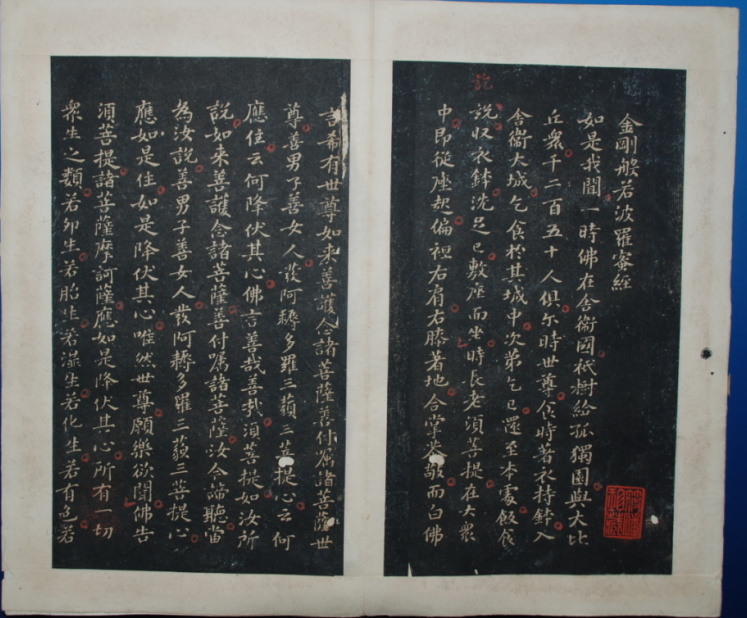 金剛般若波羅蜜經
如是我聞一時佛在舍衞國祇樹給孤獨園與大比
丘衆千二百五十人俱尒時世尊食時著衣持鉢入
舍衞大城乞食於其城中次第乞已還至本處飯食
訖收衣鉢洗足已敷座而坐時長老須菩提在大衆
中即從座起偏袒右肩右膝著地合掌恭敬而白佛
言希有世尊如來善護念諸菩薩善付囑諸菩薩世
尊善男子善女人發阿耨多羅三藐三菩提心云何
應住云何降伏其心佛言善哉善哉須菩提如汝所
說如來善護念諸菩薩善付囑諸菩薩汝今諦聽當
為汝說善男子善女人發阿耨多羅三藐三菩提心
應如是住如是降伏其心唯然世尊願樂欲聞佛告
須菩提諸菩薩摩訶薩應如是降伏其心所有一切
衆生之類若卵生若胎生若濕生若化生若有色若